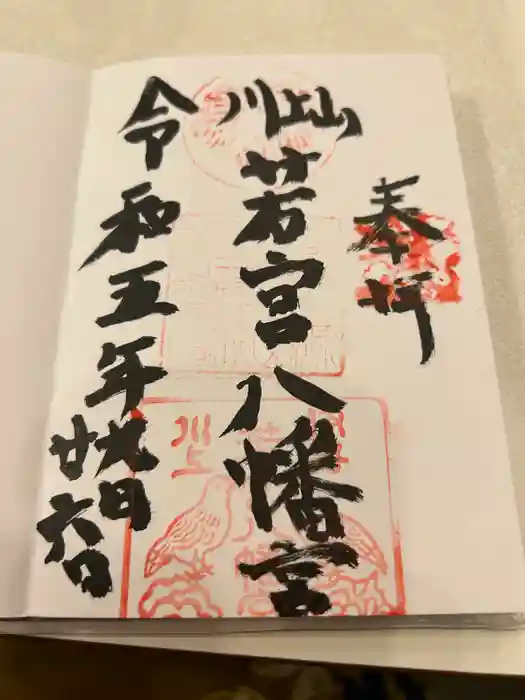 奉拝
川上山
若宮八幡宮
令和五年九月
廿六日
川上